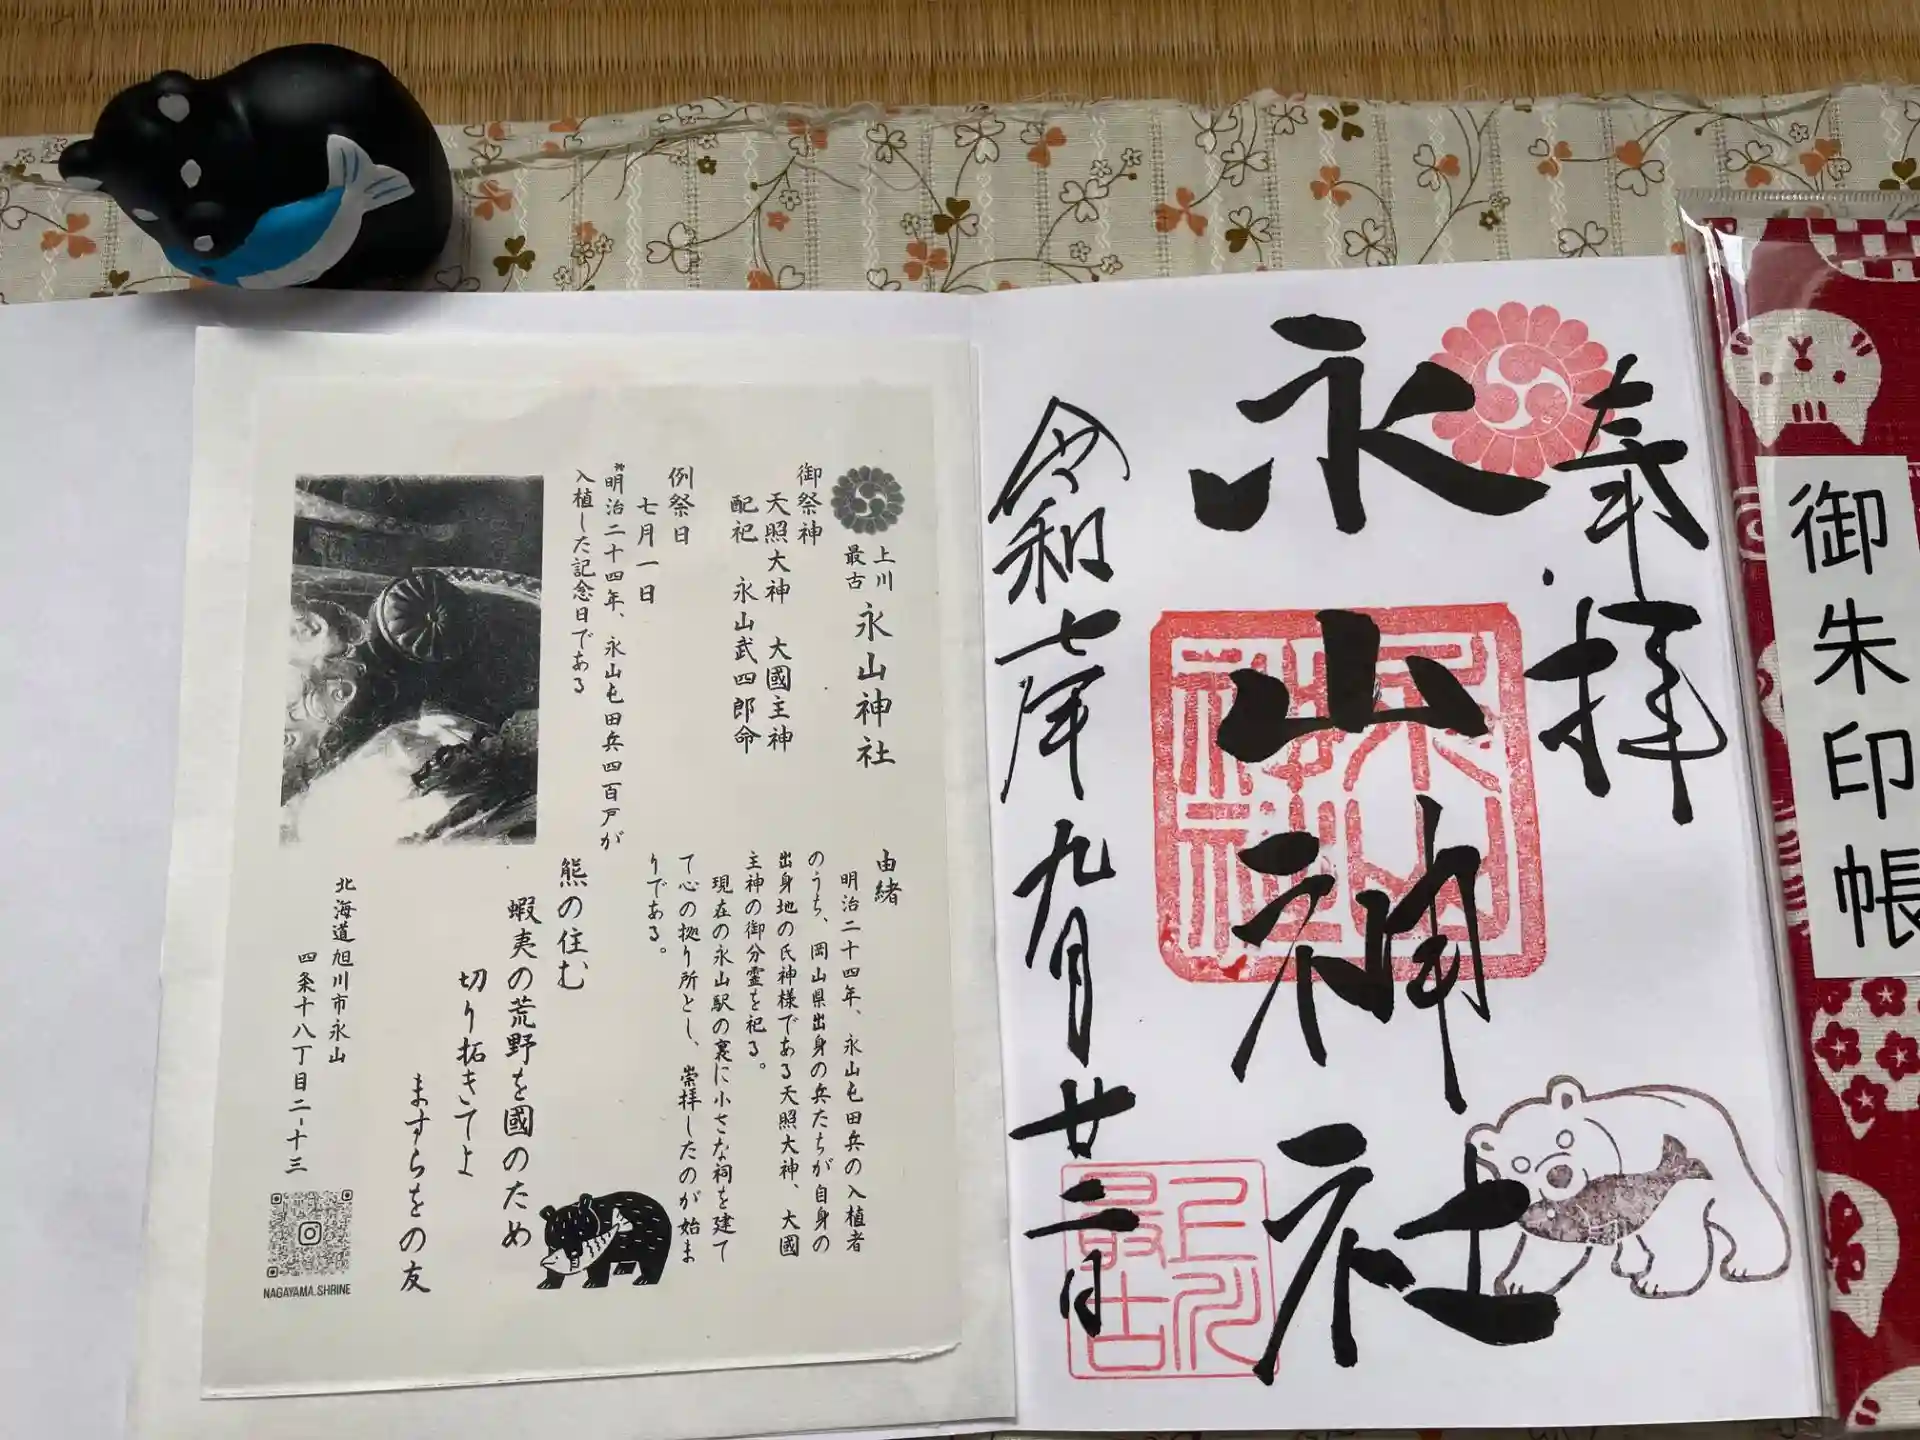 御朱印帳
奉拝
永山神社
令和七年九月廿二日
永山神社
上川最古
上川
最古
永山神社
御祭神
天照大神 大國主神
配祀 永山武四郎命
例祭日
七月一日
※明治二十四年、永山屯田兵四百戸が
入植した記念日である
由緒
明治二十四年、永山屯田兵の入植者
のうち、岡山県出身の兵たちが自身の
出身地の氏神様である天照大神、大國
主神の御分霊を祀る。
現在の永山駅の裏に小さな祠を建て
て心の拠り所とし、崇拝したのが始ま
りである。
熊の住む
蝦夷の荒野を國のため
切り拓きてよ
ますらをの友
北海道旭川市永山
四条十八丁目二-十三
NAGAYAMA.SHRINE